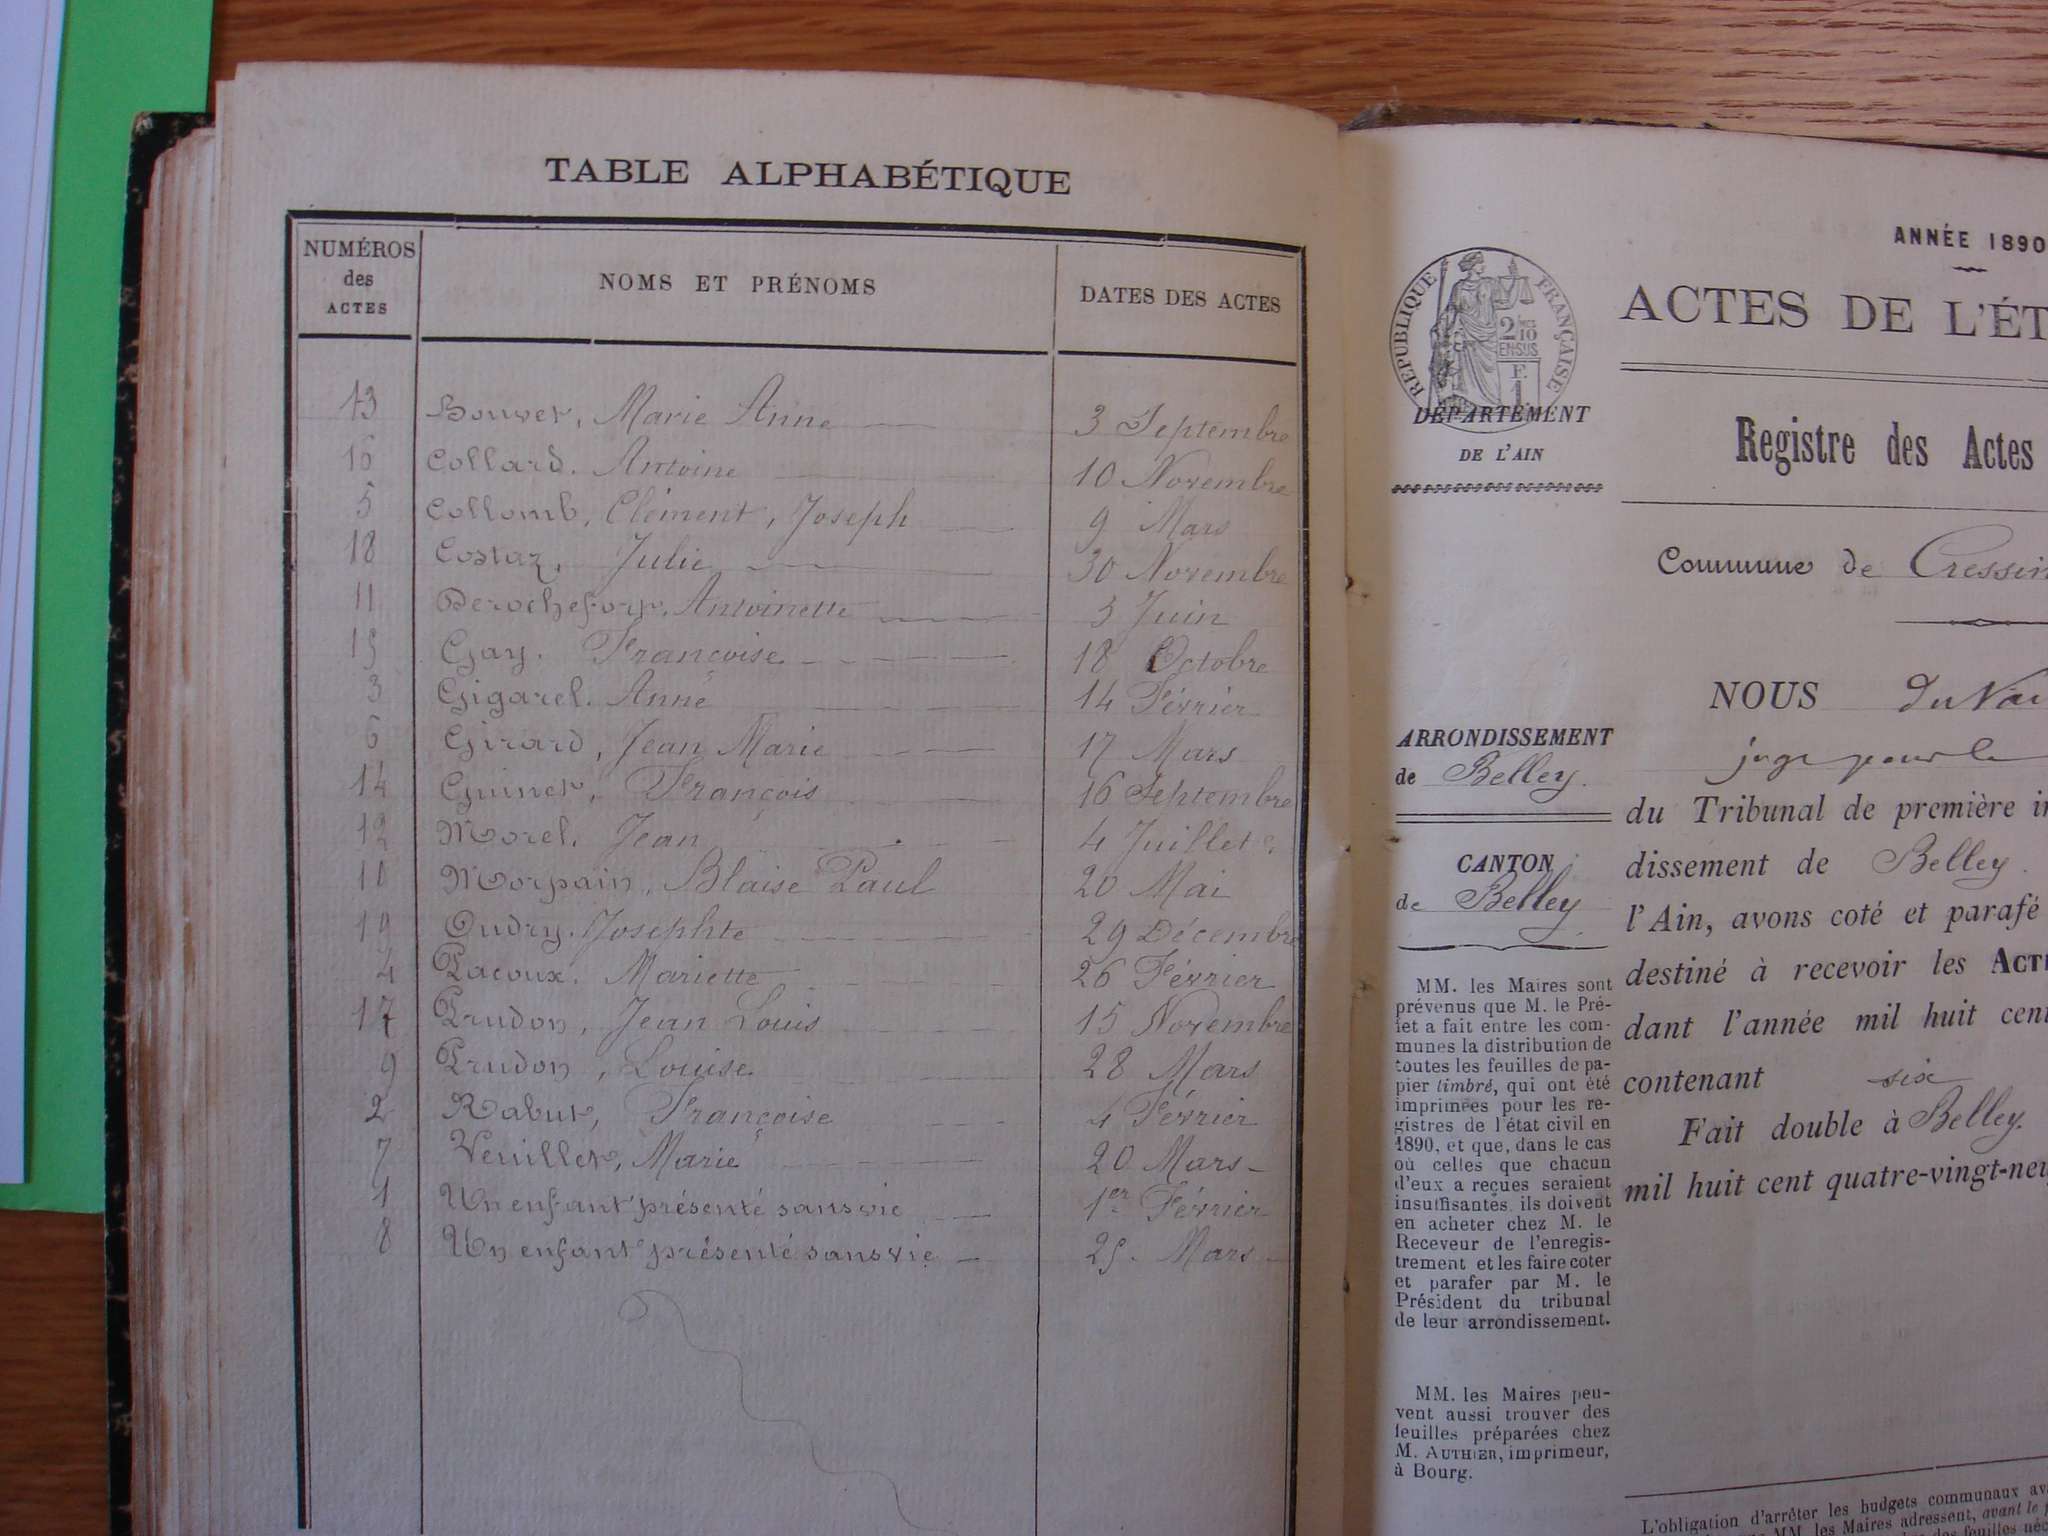 TABLE ALPHABÉTIQUE
NUMÉROS des ACTES
NOMS ET PRÉNOMS
DATES DES ACTES
13 Bouvet, Marie Anne 3 Septembre
16 Collard. Antoine 10 Novembre
5 Collomb, Clément, Joseph 9 Mars
18 Costaz, Julie 30 Novembre
11 Derochefort, Antoinette 3 Juin
15 Gay. Françoise 18 Octobre
3 Gigarel. Anne 14 Février
6 Girard, Jean Marie 17 Mars
14 Guinet, François 16 Septembre
12 Morel, Jean 4 Juillet
10 Morpain, Blaise Paul 20 Mai
19 Oudry. Josephte 29 Décembre
4 Pacoux. Mariette 26 Février
17 Prudon, Jean Louis 15 Novembre
9 Prudon, Louise 28 Mars
2 Rabut, Françoise 4 Février
7 Veuillet, Marie 20 Mars
1 Un enfant présenté sans vie 1er Février
8 Un enfant présenté sans vie 25 Mars
ANNÉE 1890
ACTES DE L'ÉT
RÉPUBLIQUE FRANÇAISE
2 10
EN SUS
F.
1
DÉPARTEMENT
DE L'AIN
Registre des Actes
Commune de Cressin
NOUS du
ARRONDISSEMENT
de Belley.
juge pour le
du Tribunal de première in
CANTON
de Belley
dissement de Belley.
l'Ain, avons coté et parafé
destiné à recevoir les ACT
dant l'année mil huit cent
contenant six
Fait double à Belley.
mil huit cent quatre-vingt-neu
MM. les Maires sont
prévenus que M. le Pré-
fet a fait entre les com-
munes la distribution de
toutes les feuilles de pa-
pier timbré, qui ont été
imprimées pour les re-
gistres de l'état civil en
1890, et que, dans le cas
où celles que chacun
d'eux a reçues seraient
insuffisantes, ils doivent
en acheter chez M. le
Receveur de l'enregis-
trement et les faire coter
et parafer par M. le
Président du tribunal
de leur arrondissement.
MM. les Maires peu-
vent aussi trouver des
feuilles préparées chez
M. AUTHIER, imprimeur,
à Bourg.
L'obligation d'arrêter les budgets communaux av
MM. les Maires adressent, avant le
des feuilles néc